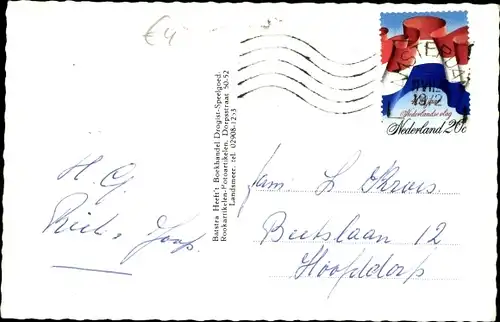 €4
AMSTERDAM
1972
Nederlandse vlag
Nederland 20c
Batstra Heeft's Boekhandel Drogist-Speelgoed-
Rookartikelen-Fotoartikelen. Dorpsstraat 50-52
Landsmeer. tel. 02908-1253
H. G.
Joop
Fam. L
Beetslaan 12
Hoofddorp